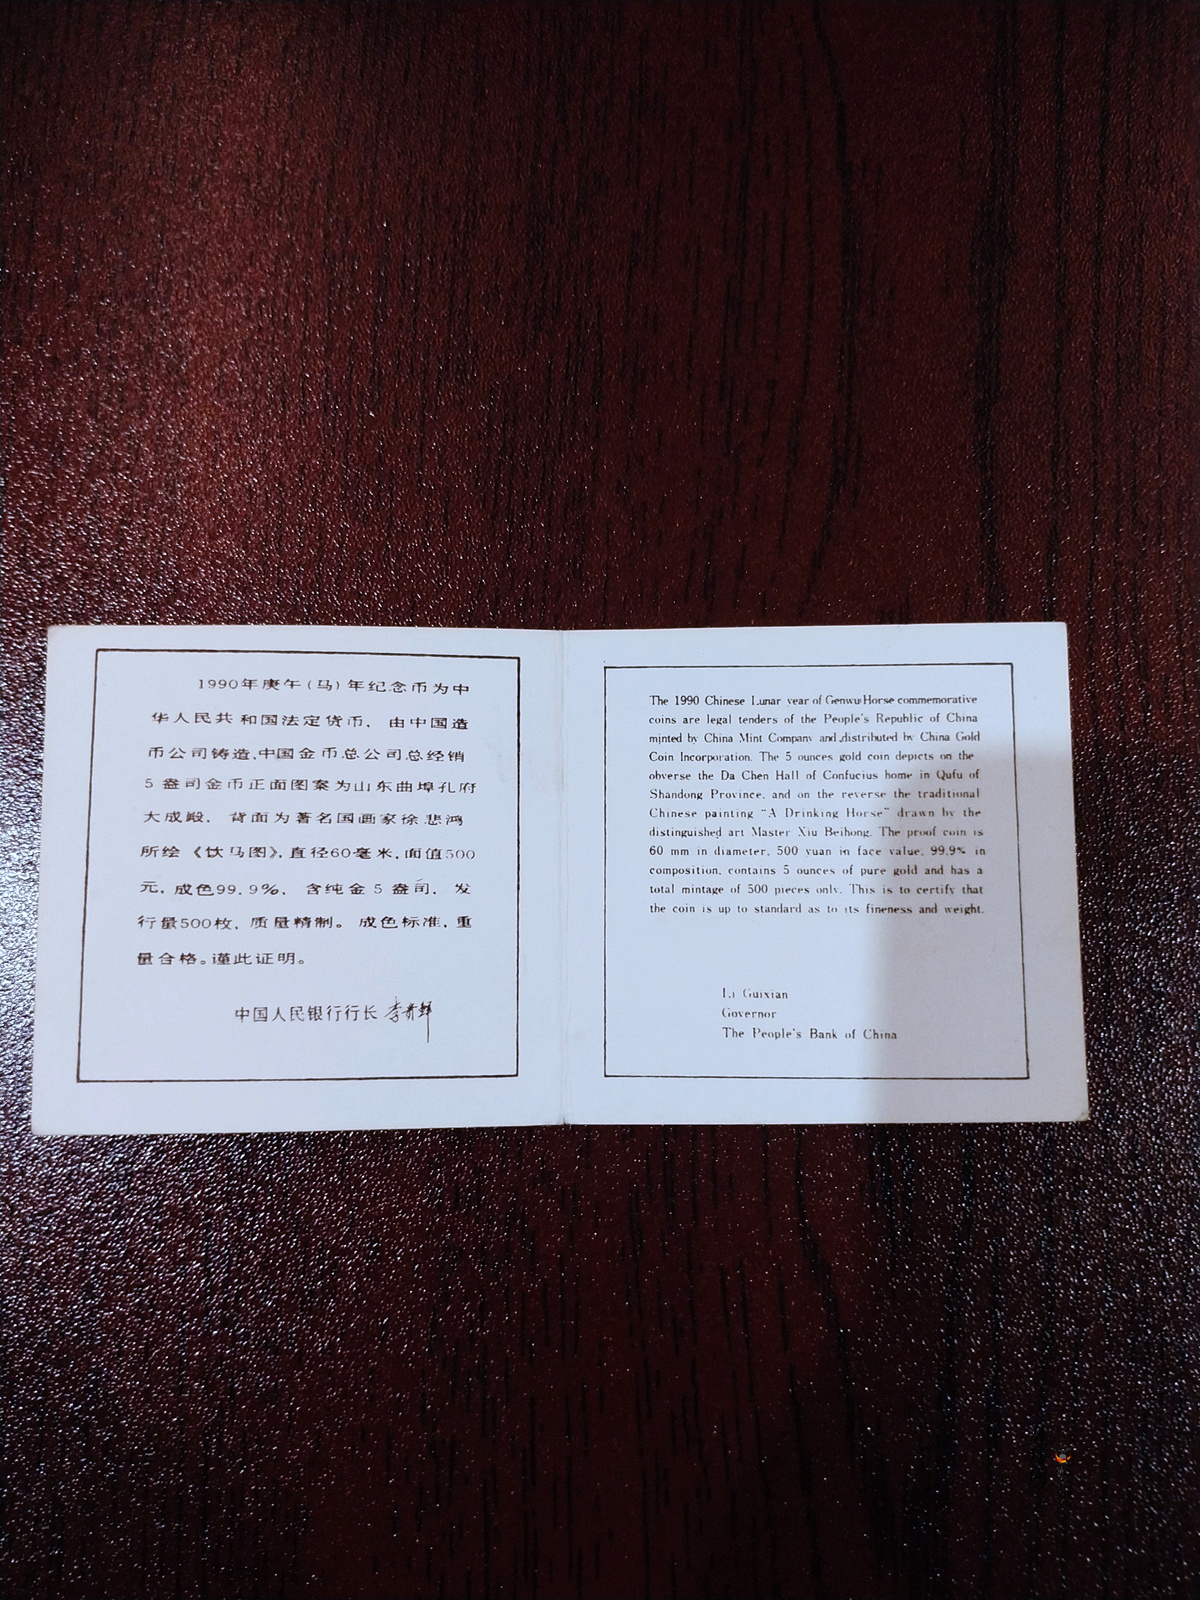 1990年庚午(马)年纪念币为中
华人民共和国法定货币, 由中国造
币公司铸造,中国金币总公司总经销
5盎司金币正面图案为山东曲埠孔府
大成殿, 背面为著名国画家徐悲鸿
所绘《饮马图》,直径60毫米,面值500
元, 成色99.9%, 含纯金5盎司, 发
行量500枚, 质量精制。 成色标准,重
量合格。谨此证明。
中国人民银行行长 李贵鲜
The 1990 Chinese Lunar year of Genwu Horse commemorative
coins are legal tenders of the People's Republic of China
minted by China Mint Company and distributed by China Gold
Coin Incorporation. The 5 ounces gold coin depicts on the
obverse the Da Chen Hall of Confucius home in Qufu of
Shandong Province, and on the reverse the traditional
Chinese painting "A Drinking Horse" drawn by the
distinguished art Master Xiu Beihong. The proof coin is
60 mm in diameter, 500 yuan in face value, 99.9% in
composition, contains 5 ounces of pure gold and has a
total mintage of 500 pieces only. This is to certify that
the coin is up to standard as to its fineness and weight.
Li Guixian
Governor
The People's Bank of China